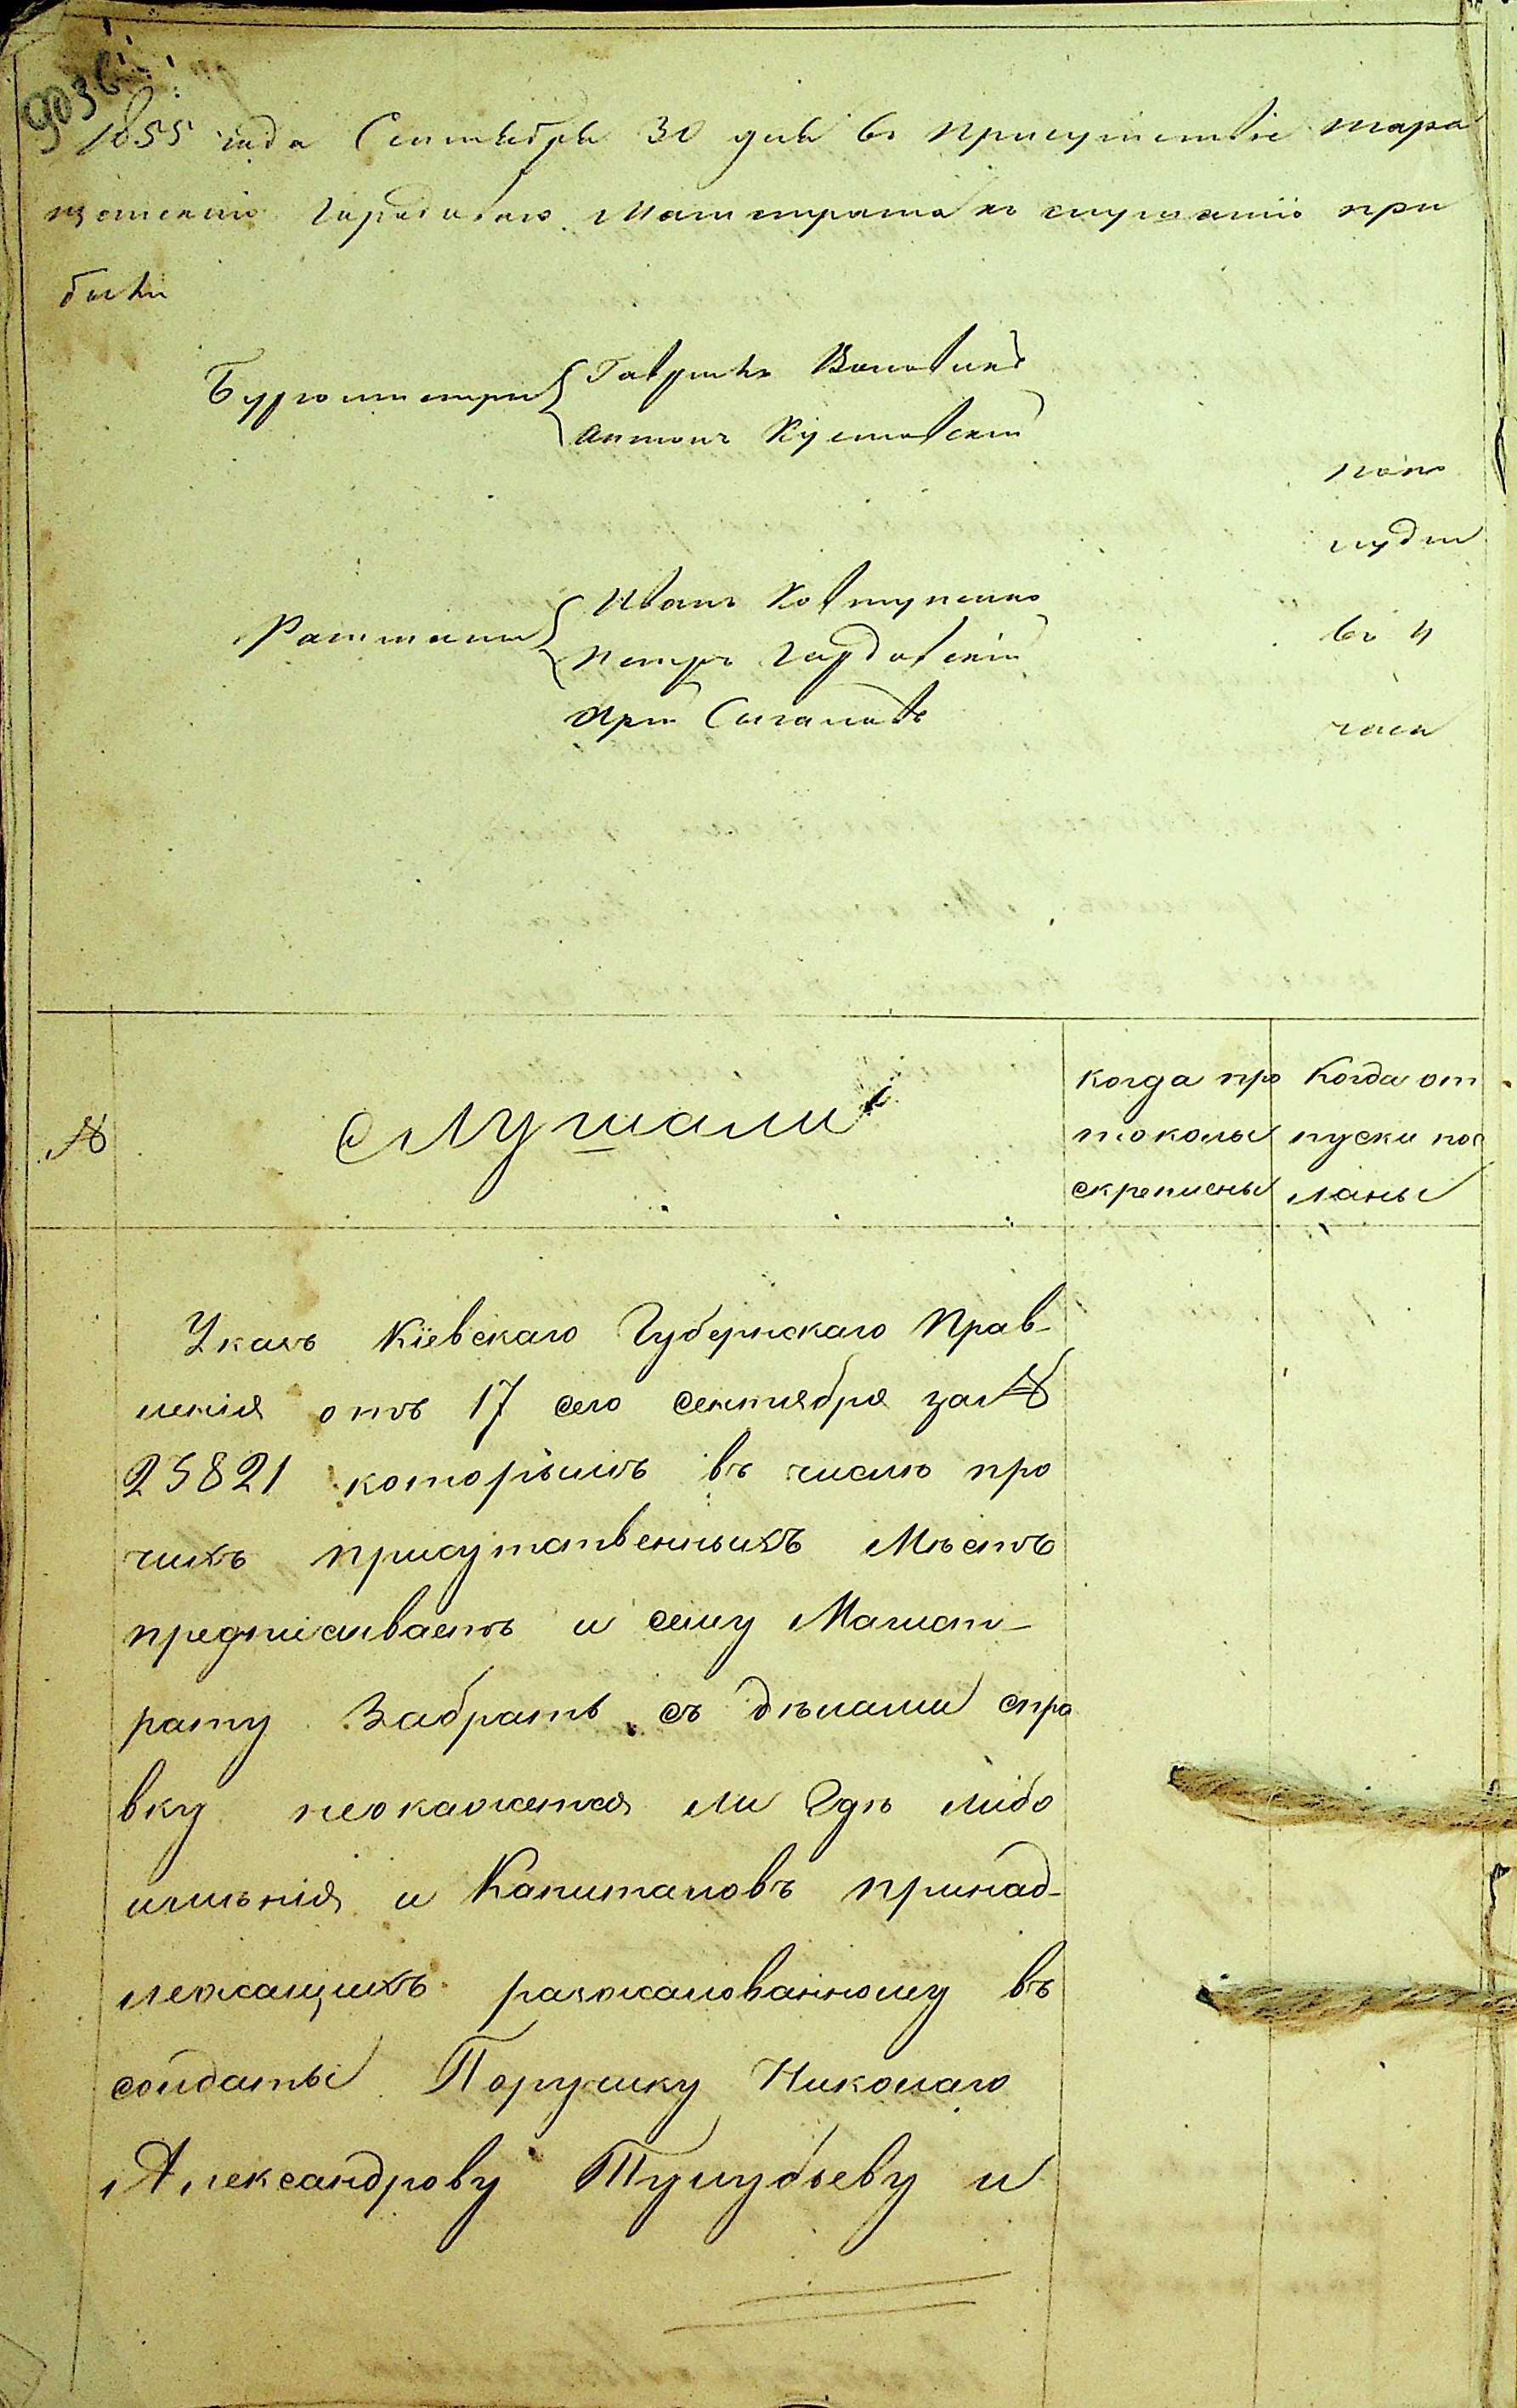 1855 года Сентября 30 дня въ присутствіе Тара
щанскаго Городоваго Магистрата къ слушанію при
были
Бургомистри Гавріилъ
Антонъ
попо
лудни
Ратманы Иванъ Ковтуненко
въ 4
Петръ Гардовскій
часа
№
Слушали
Когда про
токолы
скреплены
Когда от
пуски пос
ланы
Указъ Кіевскаго Губернскаго Прав-
ленія отъ 17 сего сентября за №
25821 которымъ въ числѣ про
чихъ присутственныхъ Мѣстъ
предписываетъ и сему Магист-
рату Забрать съ дѣлами спра
вку неокажется ли Гдѣ либо
имѣнія и Капиталовъ принад-
лежащихъ разжалованному въ
солдаты Поручику Николаю
Александрову Тулубьеву и